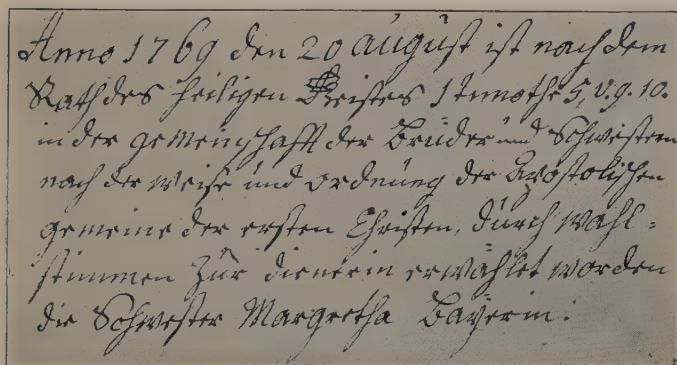 Anno 1769 den 20 august ist nach dem
Rath des Heiligen Geistes 1 Timothe 5, v. 9. 10.
in der gemeinschafft der Brüder und Schwestern
nach der weise und ordnüng der Apostolischen
gemeine der ersten Christen, dürch wahl=
stimmen Zür dienerin erwählet worden
die Schwester Margretha Bayerin.